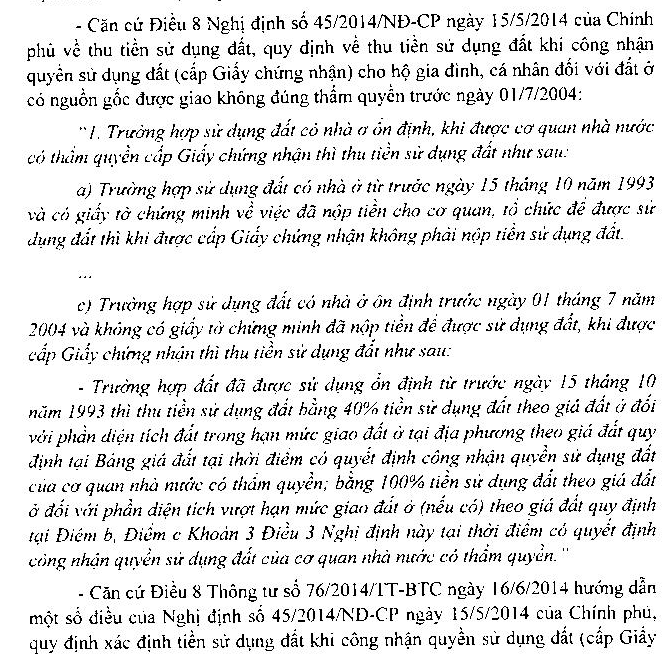 - Căn cứ Điều 8 Nghị định số 45/2014/NĐ-CP ngày 15/5/2014 của Chính
phủ về thu tiền sử dụng đất, quy định về thu tiền sử dụng đất khi công nhận
quyền sử dụng đất (cấp Giấy chứng nhận) cho hộ gia đình, cá nhân đối với đất ở
có nguồn gốc được giao không đúng thẩm quyền trước ngày 01/7/2004:
"1. Trường hợp sử dụng đất có nhà ở ổn định, khi được cơ quan nhà nước
có thẩm quyền cấp Giấy chứng nhận thì thu tiền sử dụng đất như sau:
a) Trường hợp sử dụng đất có nhà ở từ trước ngày 15 tháng 10 năm 1993
và có giấy tờ chứng minh về việc đã nộp tiền cho cơ quan, tổ chức để được sử
dụng đất thì khi được cấp Giấy chứng nhận không phải nộp tiền sử dụng đất.
...
c) Trường hợp sử dụng đất có nhà ở ổn định trước ngày 01 tháng 7 năm
2004 và không có giấy tờ chứng minh đã nộp tiền để được sử dụng đất, khi được
cấp Giấy chứng nhận thì thu tiền sử dụng đất như sau:
- Trường hợp đất đã được sử dụng ổn định từ trước ngày 15 tháng 10
năm 1993 thì thu tiền sử dụng đất bằng 40% tiền sử dụng đất theo giá đất ở đối
với phần diện tích đất trong hạn mức giao đất ở tại địa phương theo giá đất quy
định tại Bảng giá đất tại thời điểm có quyết định công nhận quyền sử dụng đất
của cơ quan nhà nước có thẩm quyền; bằng 100% tiền sử dụng đất theo giá đất
ở đối với phần diện tích vượt hạn mức giao đất ở (nếu có) theo giá đất quy định
tại Điểm b, Điểm c Khoản 3 Điều 3 Nghị định này tại thời điểm có quyết định
công nhận quyền sử dụng đất của cơ quan nhà nước có thẩm quyền."
- Căn cứ Điều 8 Thông tư số 76/2014/TT-BTC ngày 16/6/2014 hướng dẫn
một số điều của Nghị định số 45/2014/NĐ-CP ngày 15/5/2014 của Chính phủ,
quy định xác định tiền sử dụng đất khi công nhận quyền sử dụng đất (cấp Giấy